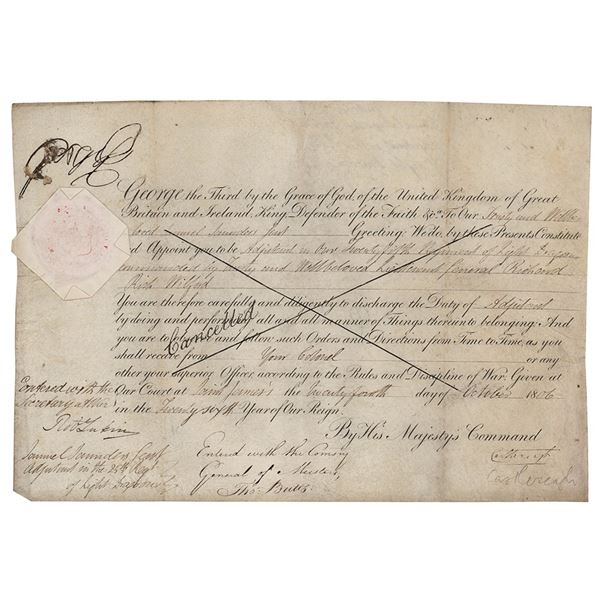 George
George the Third by the Grace of God, of the United Kingdom of Great
Britain and Ireland King, Defender of the Faith &c. To Our Trusty and Wellbe-
loved Samuel Saunders Gent Greeting: We do, by these Presents Constitute
and Appoint you to be Adjutant in Our Twenty fifth Regiment of Light Dragoons
commanded by Trusty and Wellbeloved Lieutenant General Richard
Rich Wilford
You are therefore carefully and diligently to discharge the Duty of Adjutant
by doing and performing all and all manner of Things thereto belonging: And
you are to and follow such Orders and Directions from Time to Time, as you
shall receive from Your Colonel or any
other your superior Officer, according to the Rules and Discipline of War: Given at
Our Court at Saint James's the Twenty fourth day of October 1806
in the sixth Year of Our Reign.
Cancelled
By His Majesty's Command
Entered with the
Secretary at War
Samuel Saunders Gent
Adjutant in the 25th Regt
of Light Dragoons
Enterd with the Comsry
General of Musters
Thos Butts
Castlereagh